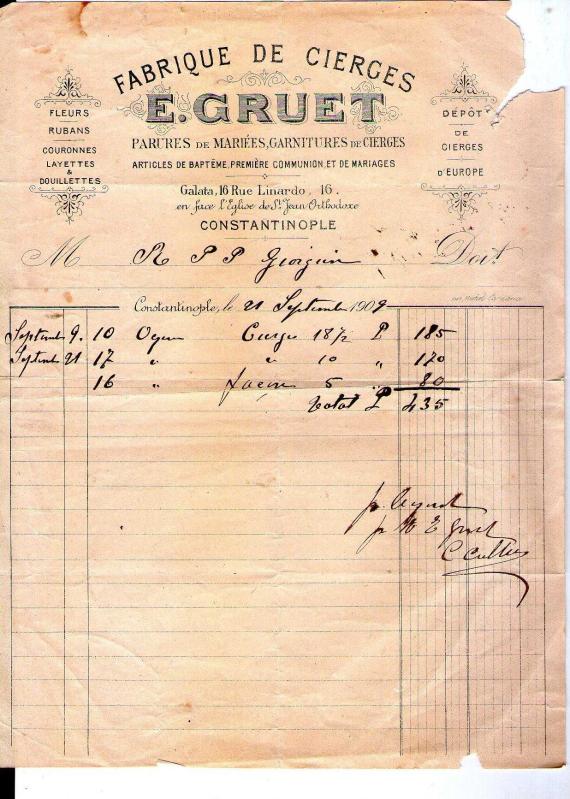 FABRIQUE DE CIERGES
E. GRUET
PARURES DE MARIÉES, GARNITURES DE CIERGES
ARTICLES DE BAPTÊME, PREMIÈRE COMMUNION, ET DE MARIAGES
Galata, 16 Rue Linardo, 16.
en face l'Eglise de St Jean Orthodoxe
CONSTANTINOPLE
FLEURS
RUBANS
COURONNES
LAYETTES
&
DOUILLETTES
DÉPÔT
DE
CIERGES
D'EUROPE
M R P P Doit
Constantinople, le 21 Septembre 1909
Septemb 9. 10 Cierges 18 1/2 P 185
Septemb 21 17 " " 10 " 170
16 " façon 5 " 80
Total P 435
p. acquit
p. E Gruet